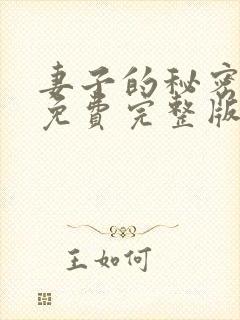 妻子的秘密
免费完整版
王如何